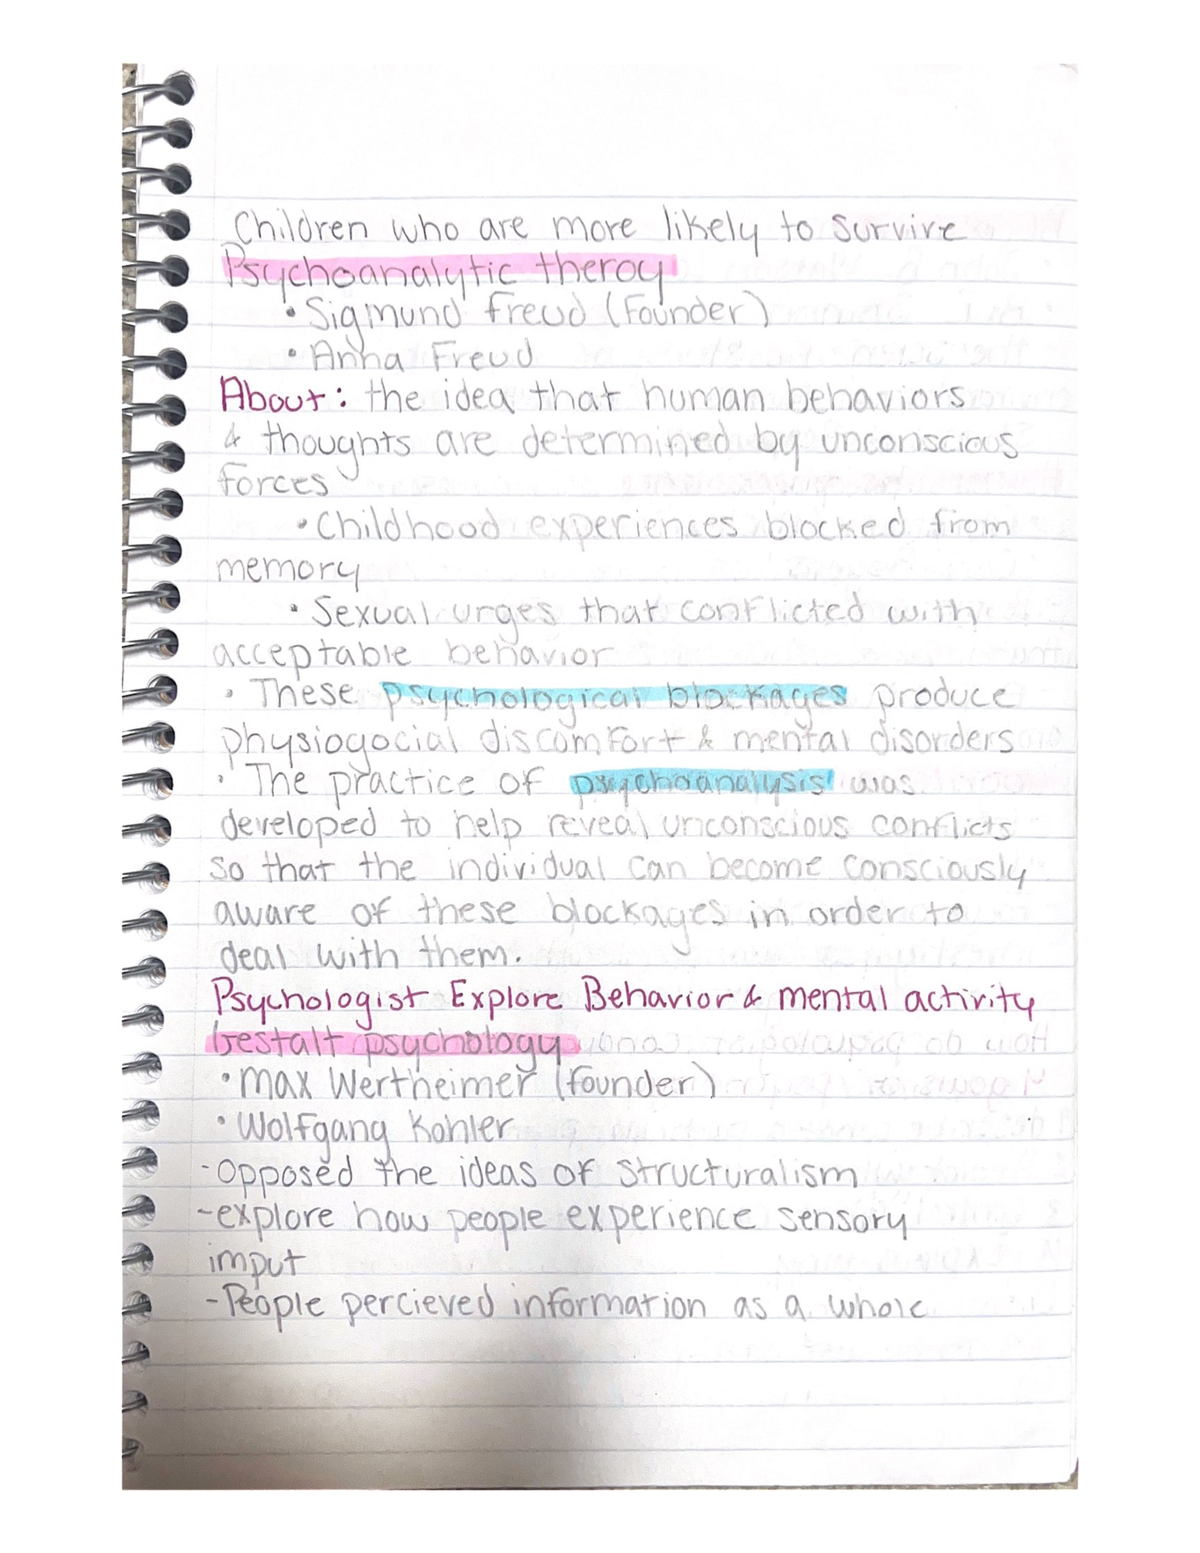 Children who are more likely to survive
Psychoanalytic theroy
• Sigmund Freud (Founder)
• Anna Freud
About: the idea that human behaviors
& thoughts are determined by unconscious
forces
• Childhood experiences blocked from
memory
• Sexual urges that conflicted with
acceptable behavior
• These psychological blockages produce
physiogocial discomfort & mental disorders
• The practice of psychoanalysis was
developed to help reveal unconscious conflicts
so that the individual can become consciously
aware of these blockages in order to
deal with them.
Psychologist Explore Behavior & mental activity
Gestalt psychology
• Max Wertheimer (founder)
• Wolfgang Kohler
- Opposed the ideas of structuralism
- explore how people experience sensory
imput
- People percieved information as a whole